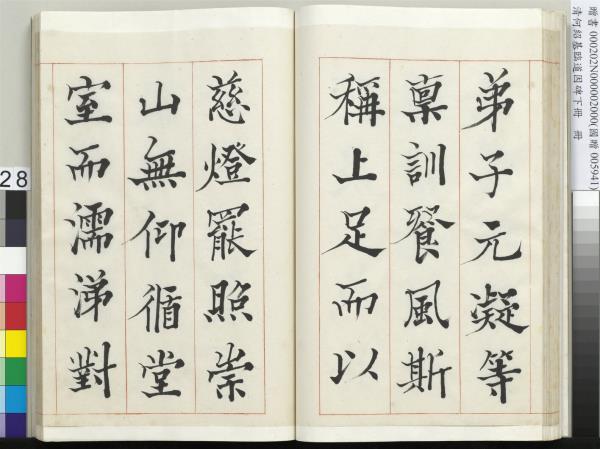 弟子元凝等
稟訓餐風斯
稱上足而以
慈燈罷照崇
山無仰循堂
室而濡涕對
28
贈書 000202N000002000(國贈 005941)
清何紹基臨道因碑下冊 冊